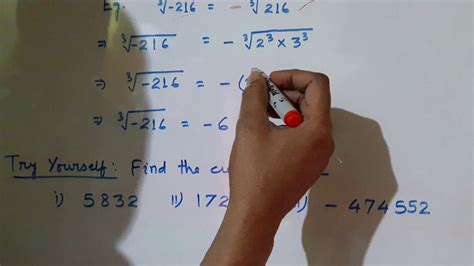 Eg. ∛-216 = - ∛216
⇒ ∛-216 = - ∛2³ × 3³
⇒ ∛-216 = - (
⇒ ∛-216 = - 6
Try Yourself : Find the
i) 5832 ii) 172 ) - 474552